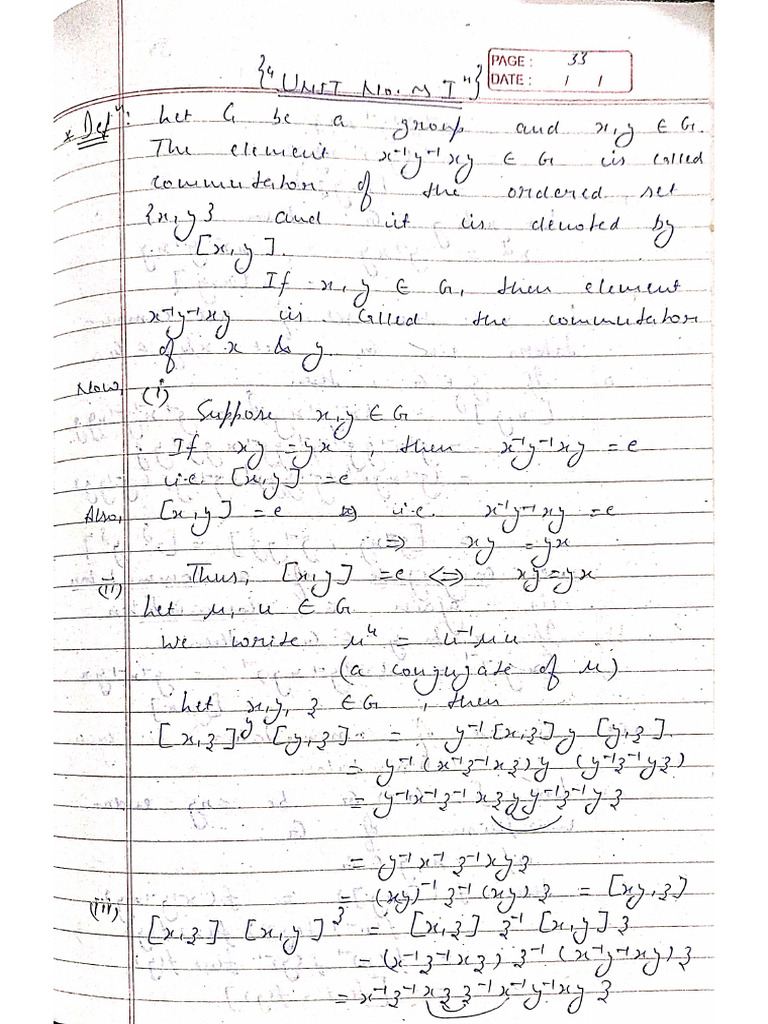 PAGE : 33
{"UNIT No. ~ I"}
DATE : / /
* Defⁿ: Let G be a group and x, y ∈ G.
The element x⁻¹y⁻¹xy ∈ G is called
commutator of the ordered set
{x, y} and it is denoted by
[x, y].
If x, y ∈ G, then element
x⁻¹y⁻¹xy is called the commutator
of x & y.
Now, (i)
Suppose x, y ∈ G
If xy = yx, then x⁻¹y⁻¹xy = e
i.e. [x, y] = e
Also, [x, y] = e i.e. x⁻¹y⁻¹xy = e
⇒ xy = yx
Thus, [x, y] = e ⇔ xy = yx
(ii)
Let u, u ∈ G
We write uᵘ = u⁻¹uu
(a conjugate of u)
Let x, y, z ∈ G, then
[x, z]ʸ [y, z] = y⁻¹ [x, z] y [y, z].
= y⁻¹ (x⁻¹z⁻¹xz) y (y⁻¹z⁻¹yz)
= y⁻¹x⁻¹z⁻¹xzyy⁻¹z⁻¹yz
= y⁻¹x⁻¹z⁻¹xyz
= (xy)⁻¹z⁻¹(xy)z = [xy, z]
(iii) [x, z] [x, y]ᶻ = [x, z] z⁻¹ [x, y] z
= (x⁻¹z⁻¹xz) z⁻¹ (x⁻¹y⁻¹xy) z
= x⁻¹z⁻¹xzz⁻¹x⁻¹y⁻¹xyz